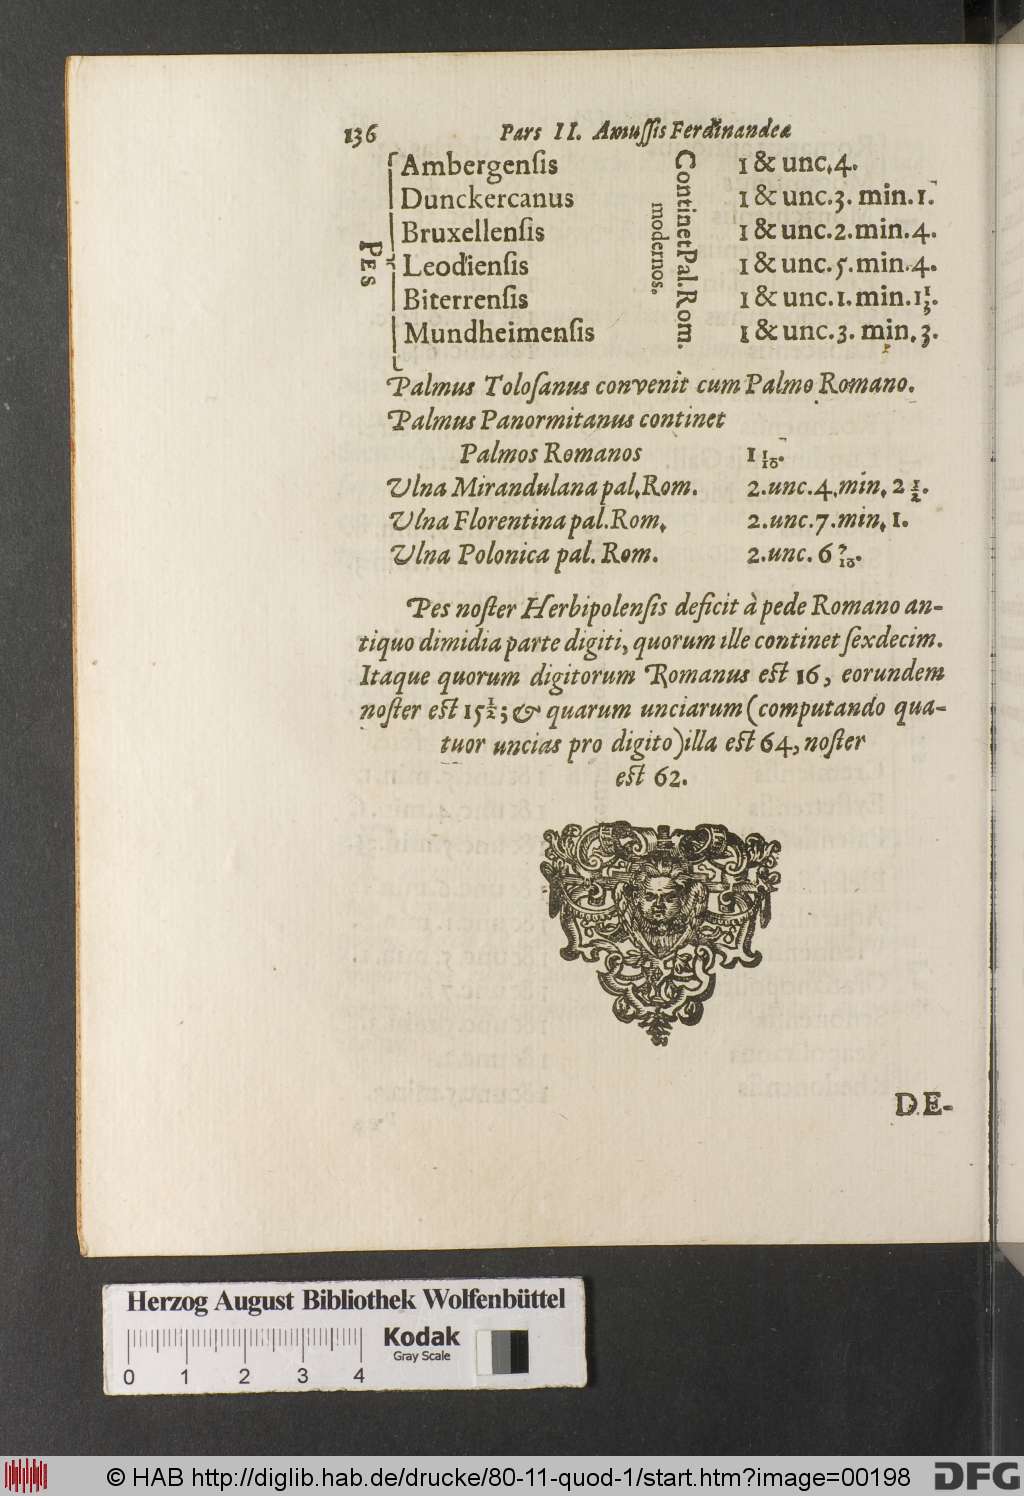 136 Pars II. Amuſſis Ferdinandeæ
PES
Ambergenſis 1 & unc.4.
Dunckercanus 1 & unc.3. min.1.
Bruxellenſis 1 & unc.2.min.4.
Leodienſis 1 & unc.5.min.4.
Biterrenſis 1 & unc.1.min.1⅓.
Mundheimenſis 1 & unc.3. min.3.
Continet Pal.Rom.
modernos.
Palmus Toloſanus convenit cum Palmo Romano.
Palmus Panormitanus continet
Palmos Romanos 1 1/10.
Vlna Mirandulana pal.Rom. 2.unc.4.min. 2 ½.
Vlna Florentina pal.Rom. 2.unc.7.min. 1.
Vlna Polonica pal. Rom. 2.unc. 6
Pes noſter Herbipolenſis deficit à pede Romano an-
tiquo dimidia parte digiti, quorum ille continet ſexdecim.
Itaque quorum digitorum Romanus eſt 16, eorundem
noſter eſt 15½; & quarum unciarum (computando qua-
tuor uncias pro digito) illa eſt 64, noſter
eſt 62.
DE-
Herzog August Bibliothek Wolfenbüttel
Kodak
Gray Scale
0 1 2 3 4
© HAB http://diglib.hab.de/drucke/80-11-quod-1/start.htm?image=00198
DFG